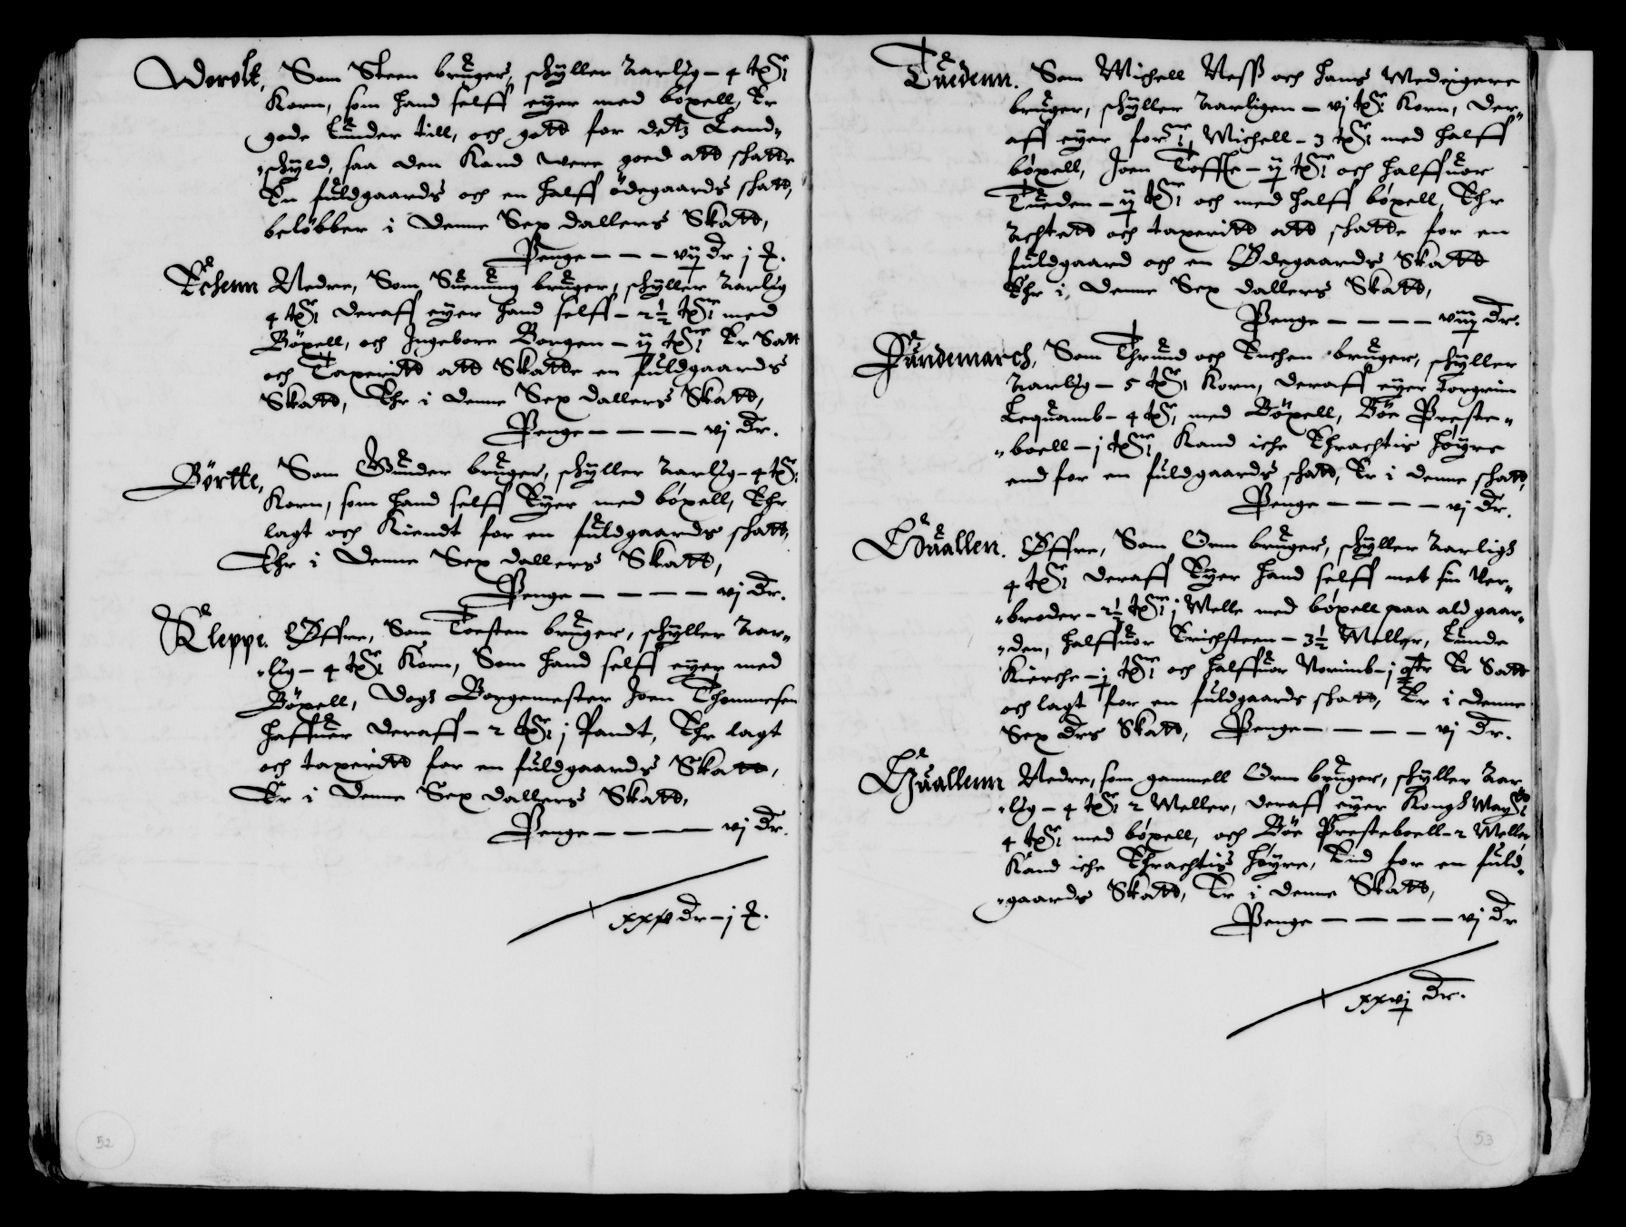 Werolt, Som Steen bruger, schyller Aarlig – 4 tdr
Korn, som hand selff eyer med böxell, Er
gode Lunder till, och gott for detz Land-
schyld, saa den Kand were goed att schatte
En fuldgaards och en halff ödegaards schatt,
belöbber i Denne Sex dallers Skatt,
Penge – – – vij dr j
Echenn Nedre, Som Suenung bruger, schyller Aarlig
4 tdr deraff eyer hand selff – 2½ tdr med
Böxell, och Ingeborre Borgen – ij tdr Er Satt
och Taxeridt att Skatte en fuldgaards
Skatt, Ehr i Denne Sex dallers Skatt,
Penge – – – – vj dr.
Börtte, Som Gunder bruger, schyller Aarlig – 4 tdr
Korn, som hand selff Eyer med böxell, Ehr
lagt och Kiendt for en fuldgaards schatt,
Ehr i Denne Sex dallers Skatt,
Penge – – – – vj dr.
Kleppe. Øffre, Som Toesten bruger, schyller Aar-
lig – 4 tdr Korn, Som hand selff eyer med
Böxell, Dogs Borgemester Joen Thommesen
haffuer deraff – 2 tdr j Pandt, Ehr lagt
och taxeridt for en fuldgaards Skatt,
Er i Denne Sex dallers Skatt,
Penge – – – – vj dr.
xxxv dr – j
52
Tuedenn. Som Michell Næss och hans Medeigere
bruger, schyller Aarligen – vj tdr Korn, der-
aff eyer forne Michell – 3 tdr med halff
böxell, Joen Toffte – ij tdr och Halffuor
Tueden – ij tdr och med halff böxell, Ehr
Achtett och taxeritt att schatte for en
fuldgaard och en Ødegaards Skatt
Ehr i Denne Sex dallers Skatt,
Penge – – – – viij dr.
Sundemarch, Som Thrund och Enchen bruger, schyller
Aarlig – 5 tdr Korn, deraff eyer Torgrim
Lequamb – 4 tdr med Böxell, Böe Preste-
boell – j tdr Kand iche Ehrachtis höyre
end for en fuldgaards schatt, Er i denne schatt,
Penge – – – – vj dr.
Huallen. Øffre, Som Orm bruger, schyller Aarligs
4 tdr deraff Eyer hand selff met sin Ver-
broder – 2½ tdr j Melle med böxell paa ald gaar-
den, Halffuor Erichsteen – 3½ Meller, Lunde
Kierche – j tdr och Halffuor Norimb – j Er Satt
och lagt for en fuldgaards schatt, Er i denne
Sex drs Skatt, Penge – – – – vj dr.
Huallenn Nedre, som gammell Orm bruger, schyller Aar-
lig – 4 tdr 2 Meller, deraff eyer Kongs Maytt
4 tdr med böxell, och Böe Presteboell – 2 Meller
Kand iche Ehrachtis höyre, End for en fuld-
gaards Skatt, Er i denne Skatt,
Penge – – – – vj dr
xxvj dr.
53